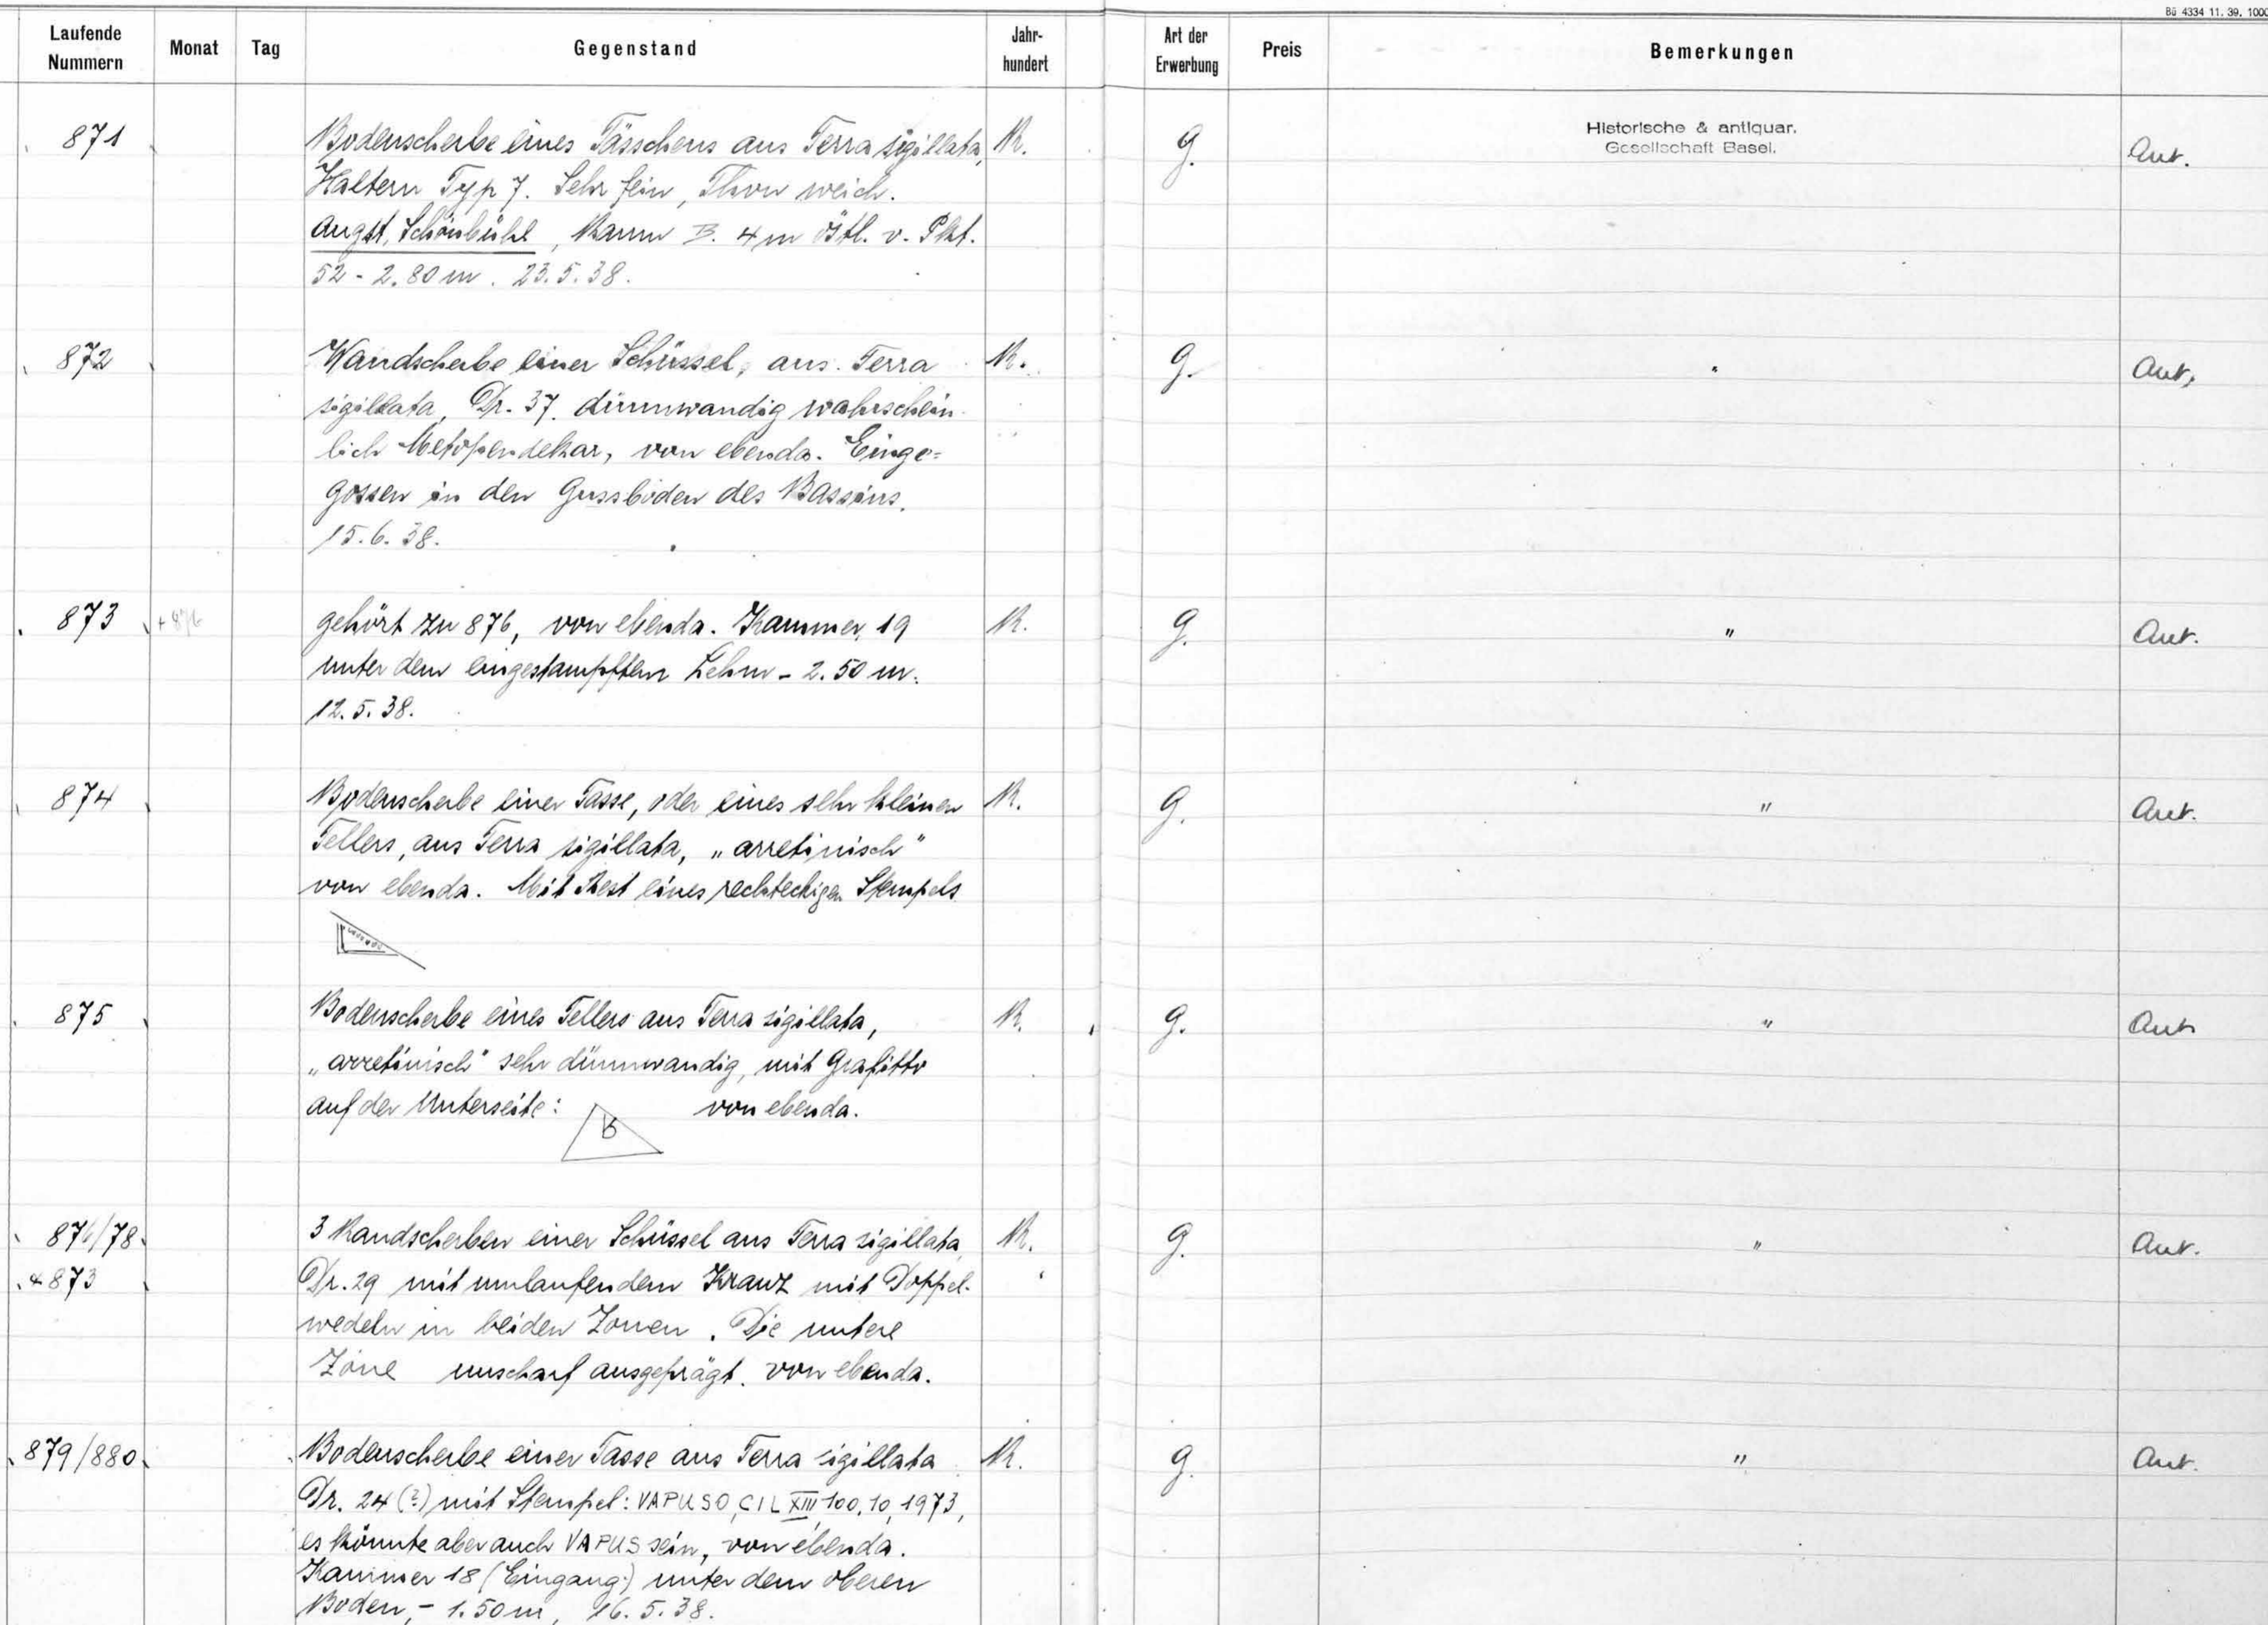 Bü 4334 11. 39. 1000
Laufende Nummern Monat Tag Gegenstand Jahr-hundert Art der Erwerbung Preis Bemerkungen
871 Bodenscherbe eines Tässchens aus Terra sigillata, R. G. Historische & antiquar. Gesellschaft Basel. Ant.
Haltern Typ 7. Sehr fein, Thon weich.
Augst, Schönbühl, Raum B. 4 m östl. v. Pkt.
52 - 2.80 m. 23.5.38.
872 Wandscherbe einer Schüssel, aus Terra R. G. " Ant.
sigillata, Dr. 37. dünnwandig wahrschein-
lich Metopendekor, von ebenda. Einge=
gossen in den Gussboden des Bassins.
15.6.38.
873 + 876 gehört zu 876, von ebenda. Kammer 19 R. G. " Ant.
unter dem eingestampften Lehm - 2.50 m.
12.5.38.
874 Bodenscherbe einer Tasse, oder eines sehr kleinen R. G. " Ant.
Tellers, aus Terra sigillata, „arretinisch"
von ebenda. Mit Rest eines rechteckigen Stempels
875 Bodenscherbe eines Tellers aus Terra sigillata, R. G. " Ant
„arretinisch" sehr dünnwandig, mit Grafitto
auf der Unterseite: von ebenda.
876/78 3 Randscherben einer Schüssel aus Terra sigillata, R. G. " Ant.
+ 873 Dr. 29 mit umlaufendem Kranz mit Doppel-
wedeln in beiden Zonen. Die untere
Zone unscharf ausgeprägt. von ebenda.
879/880 Bodenscherbe einer Tasse aus Terra sigillata R. G. " Ant.
Dr. 24 (?) mit Stempel: VAPUSO, CIL XIII, 100, 10, 1973,
es könnte aber auch VAPUS sein, von ebenda.
Kammer 18 (Eingang) unter dem oberen
Boden, - 1.50 m, 16.5.38.